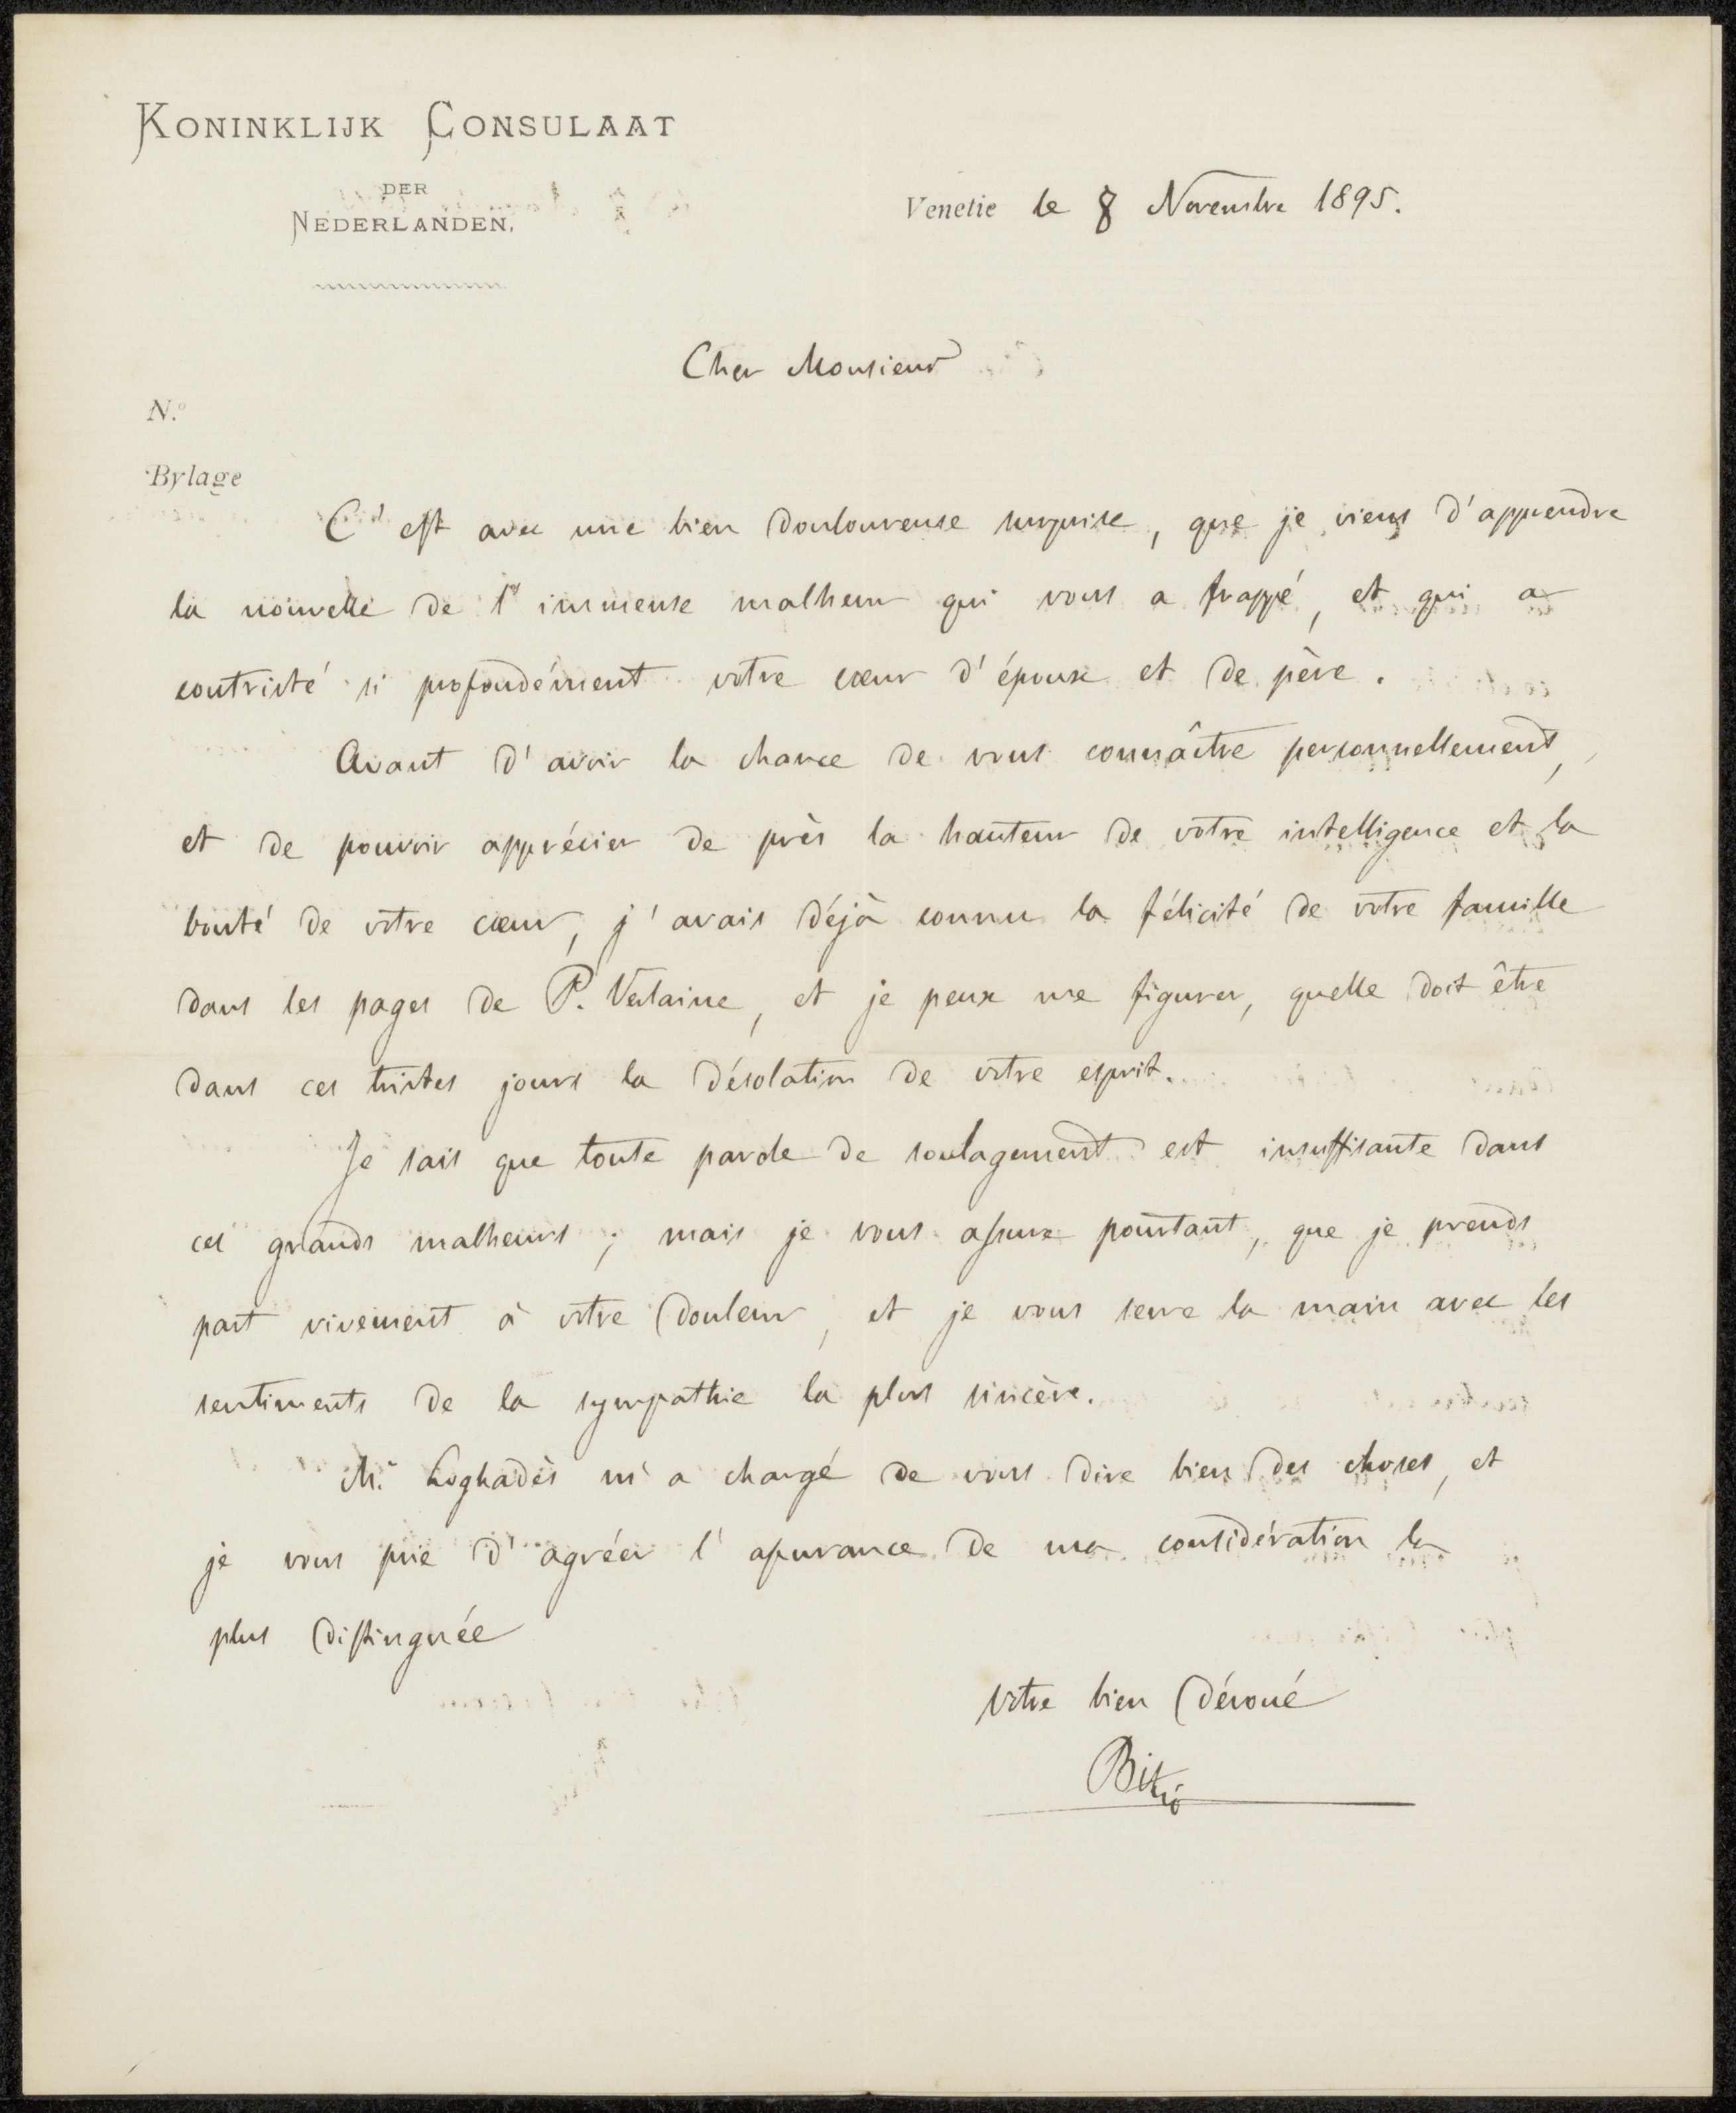 KONINKLIJK CONSULAAT
DER
NEDERLANDEN.
Venetie le 8 Novembre 1895.
Cher Monsieur
N.º
Bylage
C'est avec une bien douloureuse surprise, que je viens d'apprendre
la nouvelle de l'immense malheur qui vous a frappé, et qui a
contristé si profondément votre cœur d'époux et de père.
Avant d'avoir la chance de vous connaître personnellement,
et de pouvoir apprécier de près la hauteur de votre intelligence et la
bonté de votre cœur, j'avais déjà connu la félicité de votre famille
dans les pages de P. Verlaine, et je peux me figurer, quelle doit être
dans ces tristes jours la désolation de votre esprit.
Je sais que toute parole de soulagement est insuffisante dans
ces grands malheurs; mais je vous assure pourtant, que je prends
part vivement à votre douleur, et je vous serre la main avec les
sentiments de la sympathie la plus sincère.
Mr. m'a chargé de vous dire bien des choses, et
je vous prie d'agréer l'assurance de ma considération la
plus distinguée
Votre bien dévoué